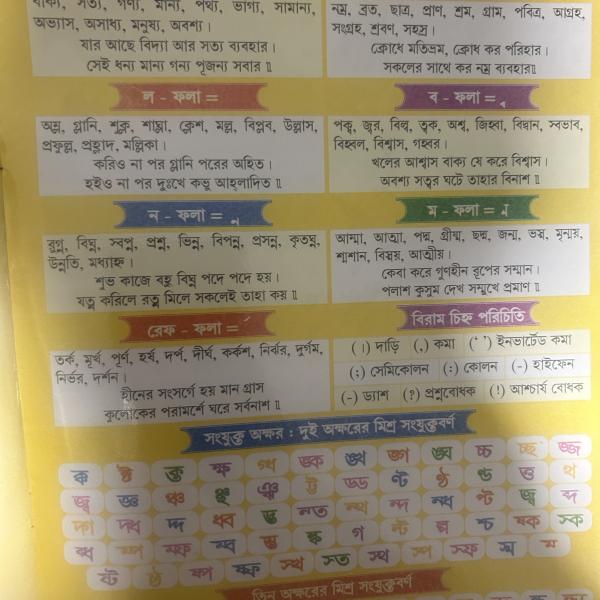 বাক্য, সত্য, গণ্য, মান্য, পথ্য, ভাগ্য, সামান্য,
অভ্যাস, অসাধ্য, মনুষ্য, অবশ্য।
যার আছে বিদ্যা আর সত্য ব্যবহার।
সেই ধন্য মান্য গন্য পূজন্য সবার ॥
নম্র, ব্রত, ছাত্র, প্রাণ, শ্রম, গ্রাম, পবিত্র, আগ্রহ,
সংগ্রহ, শ্রবণ, সহস্র।
ক্রোধে মতিভ্রম, ক্রোধ কর পরিহার।
সকলের সাথে কর নম্র ব্যবহার॥
ল - ফলা =
অম্ল, গ্লানি, শুক্ল, শ্লাঘা, ক্লেশ, মল্ল, বিপ্লব, উল্লাস,
প্রফুল্ল, প্রহ্লাদ, মল্লিকা।
করিও না পর গ্লানি পরের অহিত।
হইও না পর দুঃখে কভু আহ্লাদিত ॥
ব - ফলা =
পক্ব, জ্বর, বিল্ব, ত্বক, অশ্ব, জিহ্বা, বিদ্বান, স্বভাব,
বিহ্বল, বিশ্বাস, গহ্বর।
খলের আশ্বাস বাক্য যে করে বিশ্বাস।
অবশ্য সত্বর ঘটে তাহার বিনাশ ॥
ন - ফলা =
রুগ্ন, বিঘ্ন, স্বপ্ন, প্রশ্ন, ভিন্ন, বিপন্ন, প্রসন্ন, কৃতঘ্ন,
উন্নতি, মধ্যাহ্ন।
শুভ কাজে বহু বিঘ্ন পদে পদে হয়।
যত্ন করিলে রত্ন মিলে সকলেই তাহা কয় ॥
ম - ফলা =
আম্মা, আত্মা, পদ্ম, গ্রীষ্ম, ছদ্ম, জন্ম, ভস্ম, মৃন্ময়,
শ্মশান, বিস্ময়, আত্মীয়।
কেবা করে গুণহীন রূপের সম্মান।
পলাশ কুসুম দেখ সম্মুখে প্রমাণ ॥
রেফ - ফলা =
তর্ক, মূর্খ, পূর্ণ, হর্ষ, দর্প, দীর্ঘ, কর্কশ, নির্ঝর, দুর্গম,
নির্ভর, দর্শন।
হীনের সংসর্গে হয় মান গ্রাস
কুলোকের পরামর্শে ঘরে সর্বনাশ ॥
বিরাম চিহ্ন পরিচিতি
(।) দাড়ি (,) কমা (‘ ’) ইনভার্টেড কমা
(;) সেমিকোলন (:) কোলন (-) হাইফেন
(–) ড্যাশ (?) প্রশ্নবোধক (!) আশ্চর্য বোধক
সংযুক্ত অক্ষর : দুই অক্ষরের মিশ্র সংযুক্তবর্ণ
ক্ক ষ্ট ক্ত ক্ষ গ্ধ ঙ্ক ঙ্খ ঙ্গ ঙ্ঘ চ্চ চ্ছ জ্জ
জ্ঞ ঞ্চ ঞ্ছ ট্ট ড্ড ণ্ট ণ্ঠ ণ্ড ত্ত ত্থ
দ্গ দ্ধ দ্দ ন্ত ন্থ ন্দ ন্ধ ব্দ
ষ্ক স্ক
ব্ধ ম্প ম্ফ ম্ব
ষ্ট ষ্ঠ ষ্প ষ্ফ স্থ স্ত স্থ স্প স্ফ
তিন অক্ষরের মিশ্র সংযুক্তবর্ণ